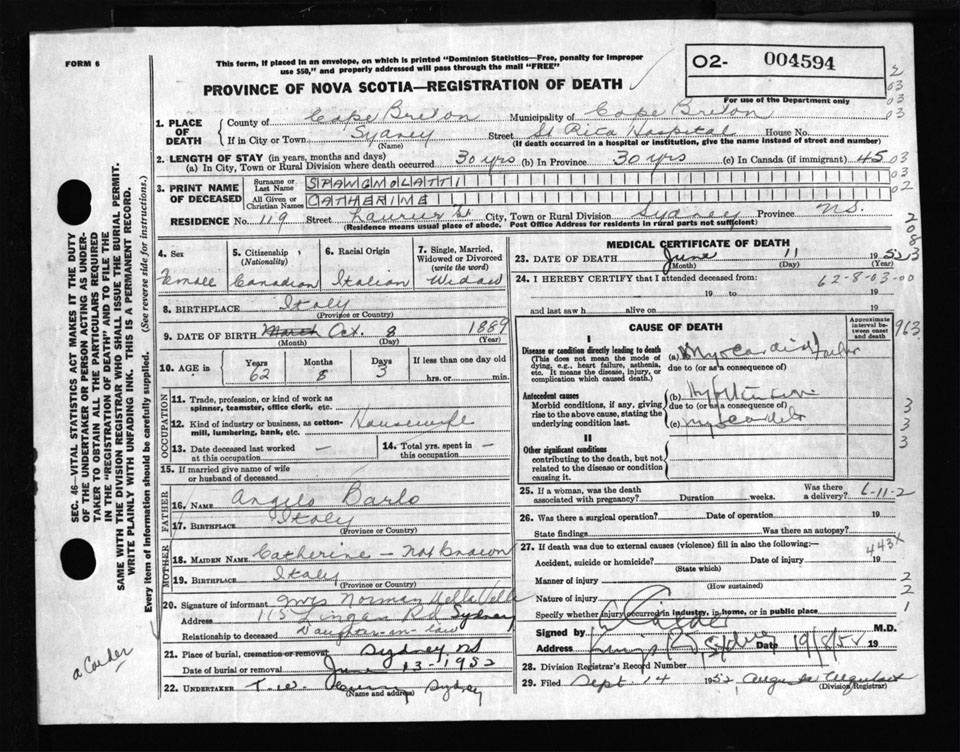 FORM 6
This form, if placed in an envelope, on which is printed "Dominion Statistics—Free, penalty for improper
use $50," and properly addressed will pass through the mail "FREE"
O2- 004594
For use of the Department only
PROVINCE OF NOVA SCOTIA—REGISTRATION OF DEATH
1. PLACE OF DEATH
County of Cape Breton Municipality of Cape Breton
If in City or Town Sydney Street St Rita Hospital House No.
(Name) (If death occurred in a hospital or institution, give the name instead of street and number)
2. LENGTH OF STAY (in years, months and days)
(a) In City, Town or Rural Division where death occurred 30 yrs (b) In Province 30 yrs (c) In Canada (if immigrant) 45
3. PRINT NAME OF DECEASED
Surname or Last Name SPANGNOLATTI
All Given or Christian Names CATHERINE
RESIDENCE No. 119 Street Laurier St City, Town or Rural Division Sydney Province N.S.
(Residence means usual place of abode. Post Office Address for residents in rural parts not sufficient)
4. Sex Female
5. Citizenship (Nationality) Canadian
6. Racial Origin Italian
7. Single, Married, Widowed or Divorced (write the word) Widow
8. BIRTHPLACE Italy
(Province or Country)
9. DATE OF BIRTH March Oct. 8 1889
(Month) (Day) (Year)
10. AGE in Years 62 Months 8 Days 3 If less than one day old hrs. or min.
OCCUPATION
11. Trade, profession, or kind of work as
spinner, teamster, office clerk, etc.
12. Kind of industry or business, as cotton-
mill, lumbering, bank, etc. Housewife
13. Date deceased last worked at this occupation —
14. Total yrs. spent in this occupation —
15. If married give name of wife
or husband of deceased
FATHER
16. NAME Angelo Barlo
17. BIRTHPLACE Italy
(Province or Country)
MOTHER
18. MAIDEN NAME Catherine — Not Known
19. BIRTHPLACE Italy
(Province or Country)
20. Signature of informant Mrs Norman DellaValle
Address 115 Lingan Rd Sydney
Relationship to deceased Daughter-in-law
21. Place of burial, cremation or removal Sydney NS
Date of burial or removal June 13 - 1952
22. UNDERTAKER T. W. Curry Sydney
(Name and address)
MEDICAL CERTIFICATE OF DEATH
23. DATE OF DEATH June 11 1952
(Month) (Day) (Year)
24. I HEREBY CERTIFY that I attended deceased from: 62-8-03-00
19 to 19
and last saw h alive on 19
CAUSE OF DEATH
Approximate interval between onset and death
I
Disease or condition directly leading to death
(This does not mean the mode of
dying, e.g., heart failure, asthenia,
etc. It means the disease, injury, or
complication which caused death.)
(a) Myocardial Failure
due to (or as a consequence of)
Antecedent causes
Morbid conditions, if any, giving
rise to the above cause, stating the
underlying condition last.
(b) Hypertension
due to (or as a consequence of)
(c) Myocarditis
II
Other significant conditions
contributing to the death, but not
related to the disease or condition
causing it.
25. If a woman, was the death
associated with pregnancy? Duration weeks. Was there a delivery? 6-11-2
26. Was there a surgical operation? Date of operation 19
State findings Was there an autopsy?
27. If death was due to external causes (violence) fill in also the following:— 443X
Accident, suicide or homicide? Date of injury 19
(State which)
Manner of injury
(How sustained)
Nature of injury
Specify whether injury occurred in industry, in home, or in public place
Signed by Calder M.D.
Address Kings Rd Sydney Date 19/8/52
28. Division Registrar's Record Number
29. Filed Sept. 14 1952
(Division Registrar)
SEC. 46—VITAL STATISTICS ACT MAKES IT THE DUTY
OF THE UNDERTAKER OR PERSON ACTING AS UNDER-
TAKER TO OBTAIN ALL THE PARTICULARS REQUIRED
IN THE "REGISTRATION OF DEATH" AND TO FILE THE
SAME WITH THE DIVISION REGISTRAR WHO SHALL ISSUE THE BURIAL PERMIT.
WRITE PLAINLY WITH UNFADING INK. THIS IS A PERMANENT RECORD.
Every item of information should be carefully supplied. (See reverse side for instructions.)
a Calder
2
03
03
03
03
03
02
208
3
963
3
3
3
2
2
1